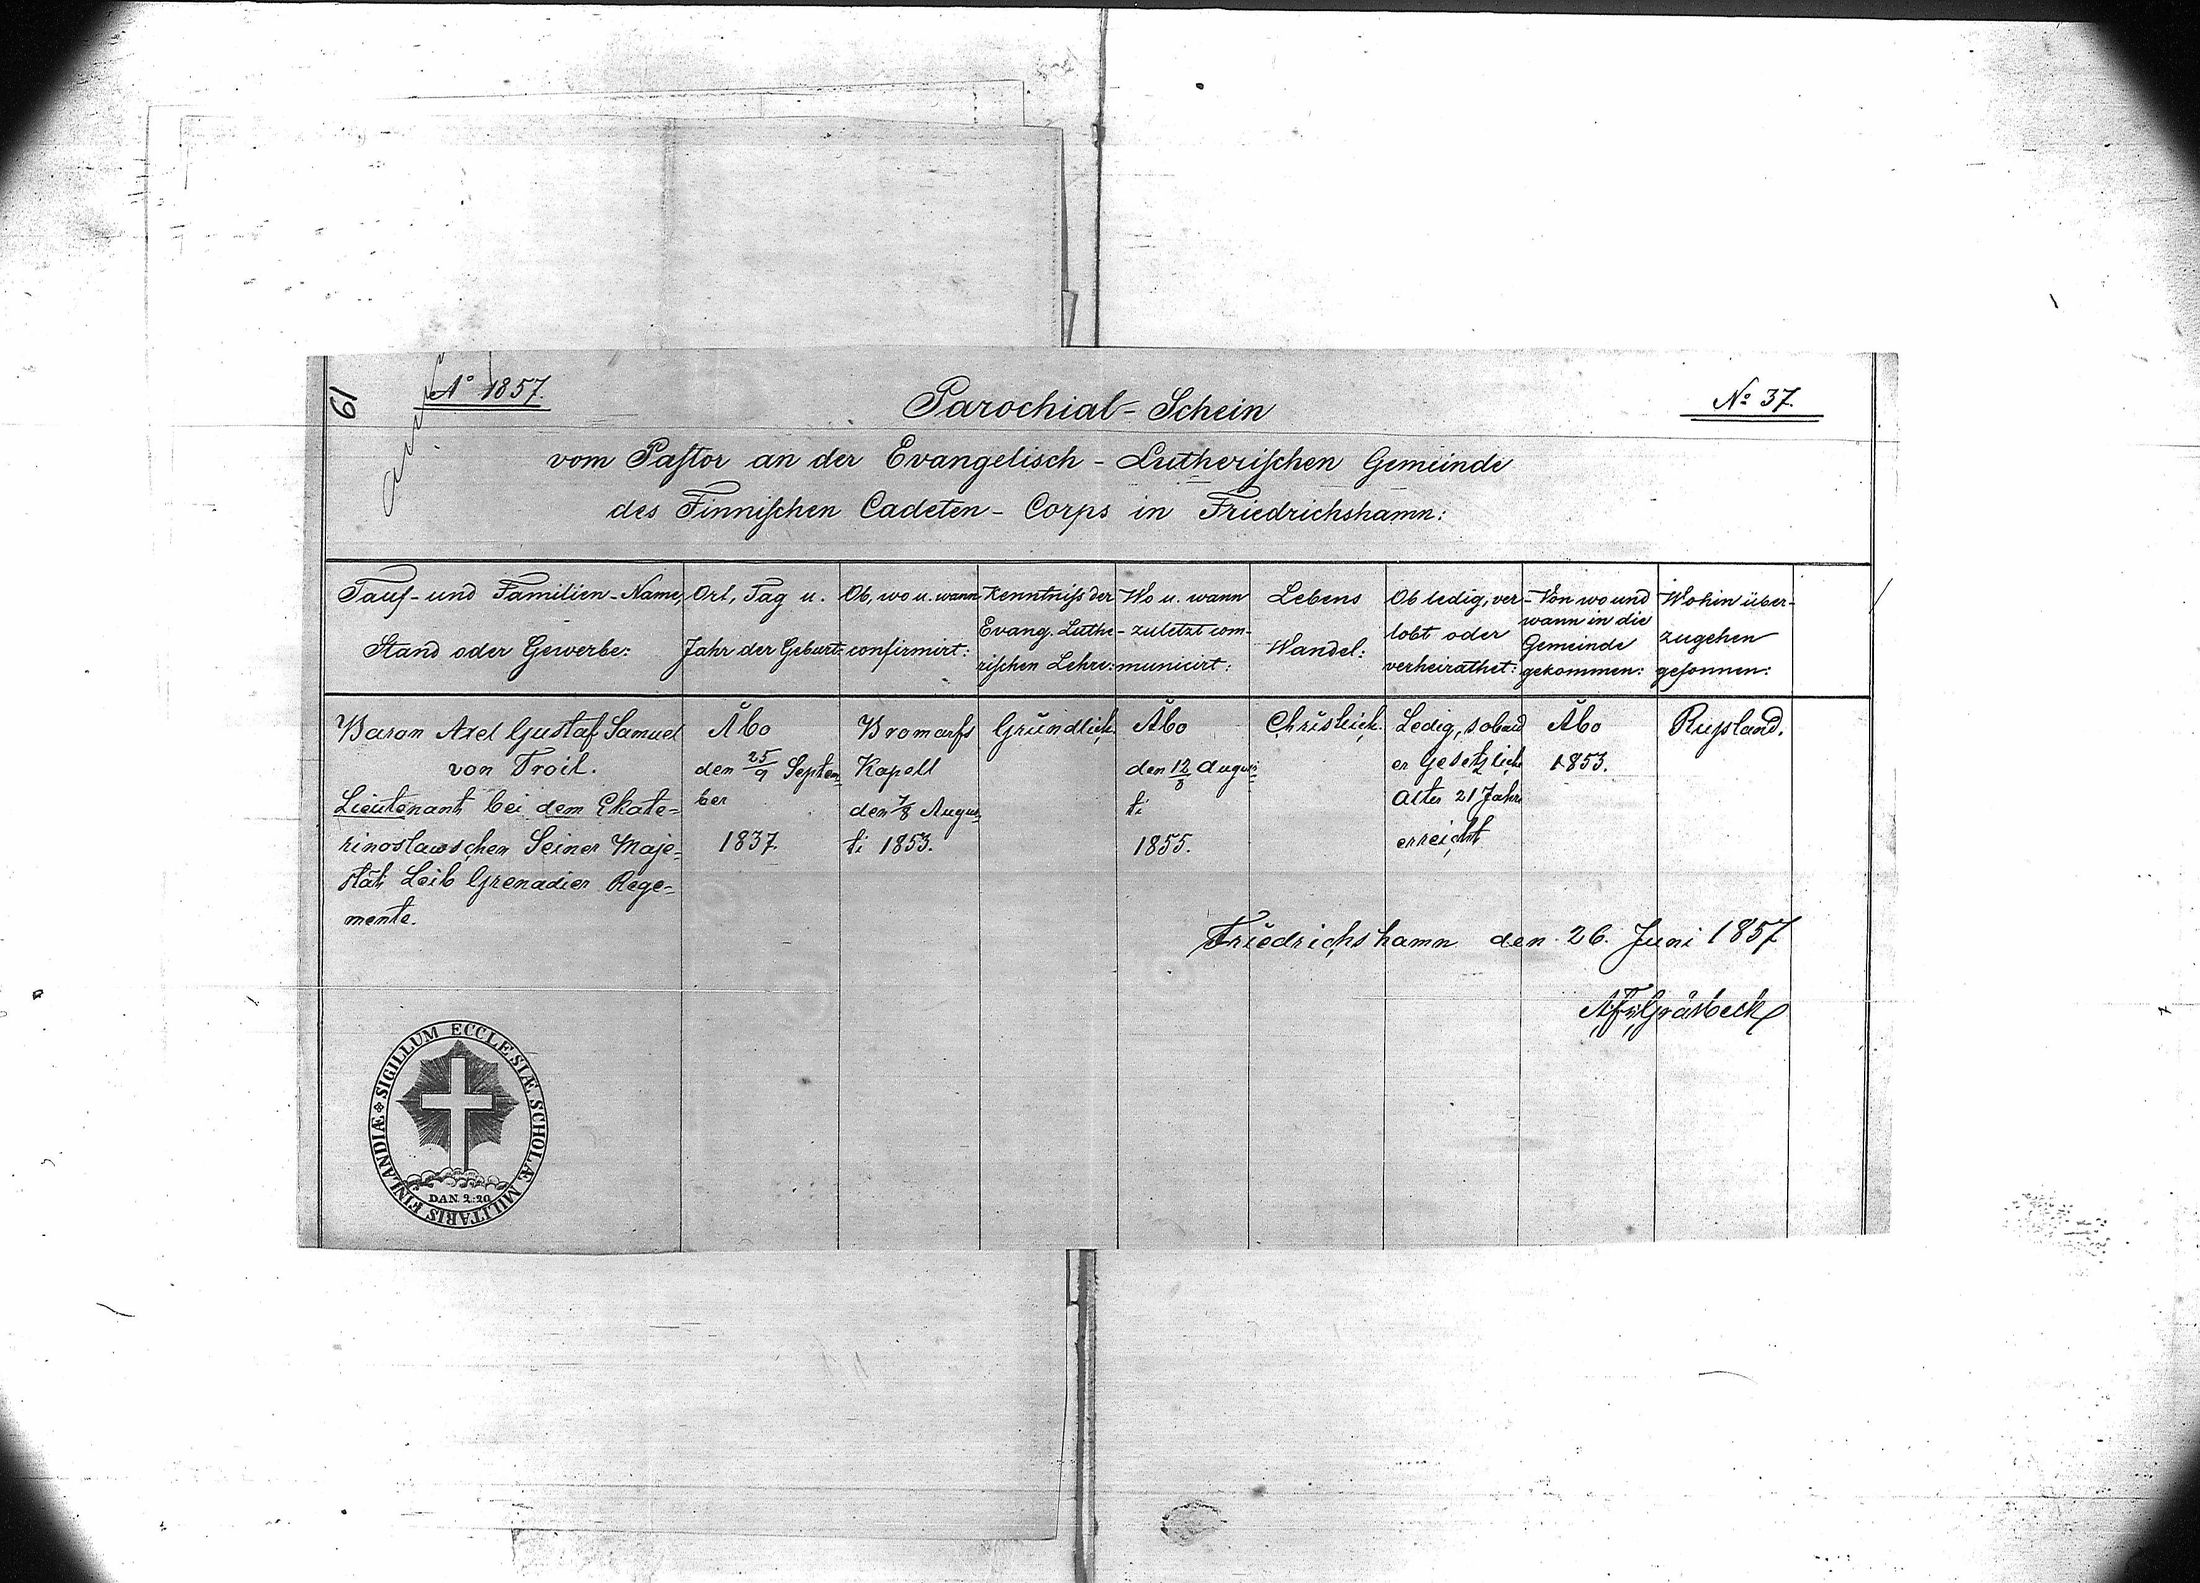 61
A° 1857.
N° 37.
Parochial-Schein
vom Pastor an der Evangelisch-Lutherischen Gemeinde
des Finnischen Cadeten-Corps in Friedrichshamn:
Tauf- und Familien-Name,
Stand oder Gewerbe:
Ort, Tag u.
Jahr der Geburt:
Ob, wo u. wann
confirmirt:
Kenntniss der
Evang. Luthe-
rischen Lehre:
Wo u. wann
zuletzt com-
municirt:
Lebens
Wandel:
Ob ledig, ver-
lobt oder
verheirathet:
Von wo und
wann in die
Gemeinde
gekommen:
Wohin über-
zugehen
gesonnen:
Baron Axel Gustaf Samuel
von Troil.
Lieutenant bei dem Ekate=
rinoslawschen Seiner Maje=
stät Leib Grenadier Rege=
mente.
Åbo
den 25/9 Septem
ber
1837.
Bromarfs
Kapell
den 7/8 Augus
ti 1853.
Gründlich.
Åbo
den 12/8 Augus=
ti
1855.
Christlich.
Ledig, sobald
er Gesetzliche
Alter 21 Jahre
erreicht
Åbo
1853.
Russland.
Friedrichshamn den 26. Juni 1857
Gråsbeck
SIGILLUM ECCLESIÆ SCHOLÆ MILITARIS FINLANDIÆ
DAN. 2:20